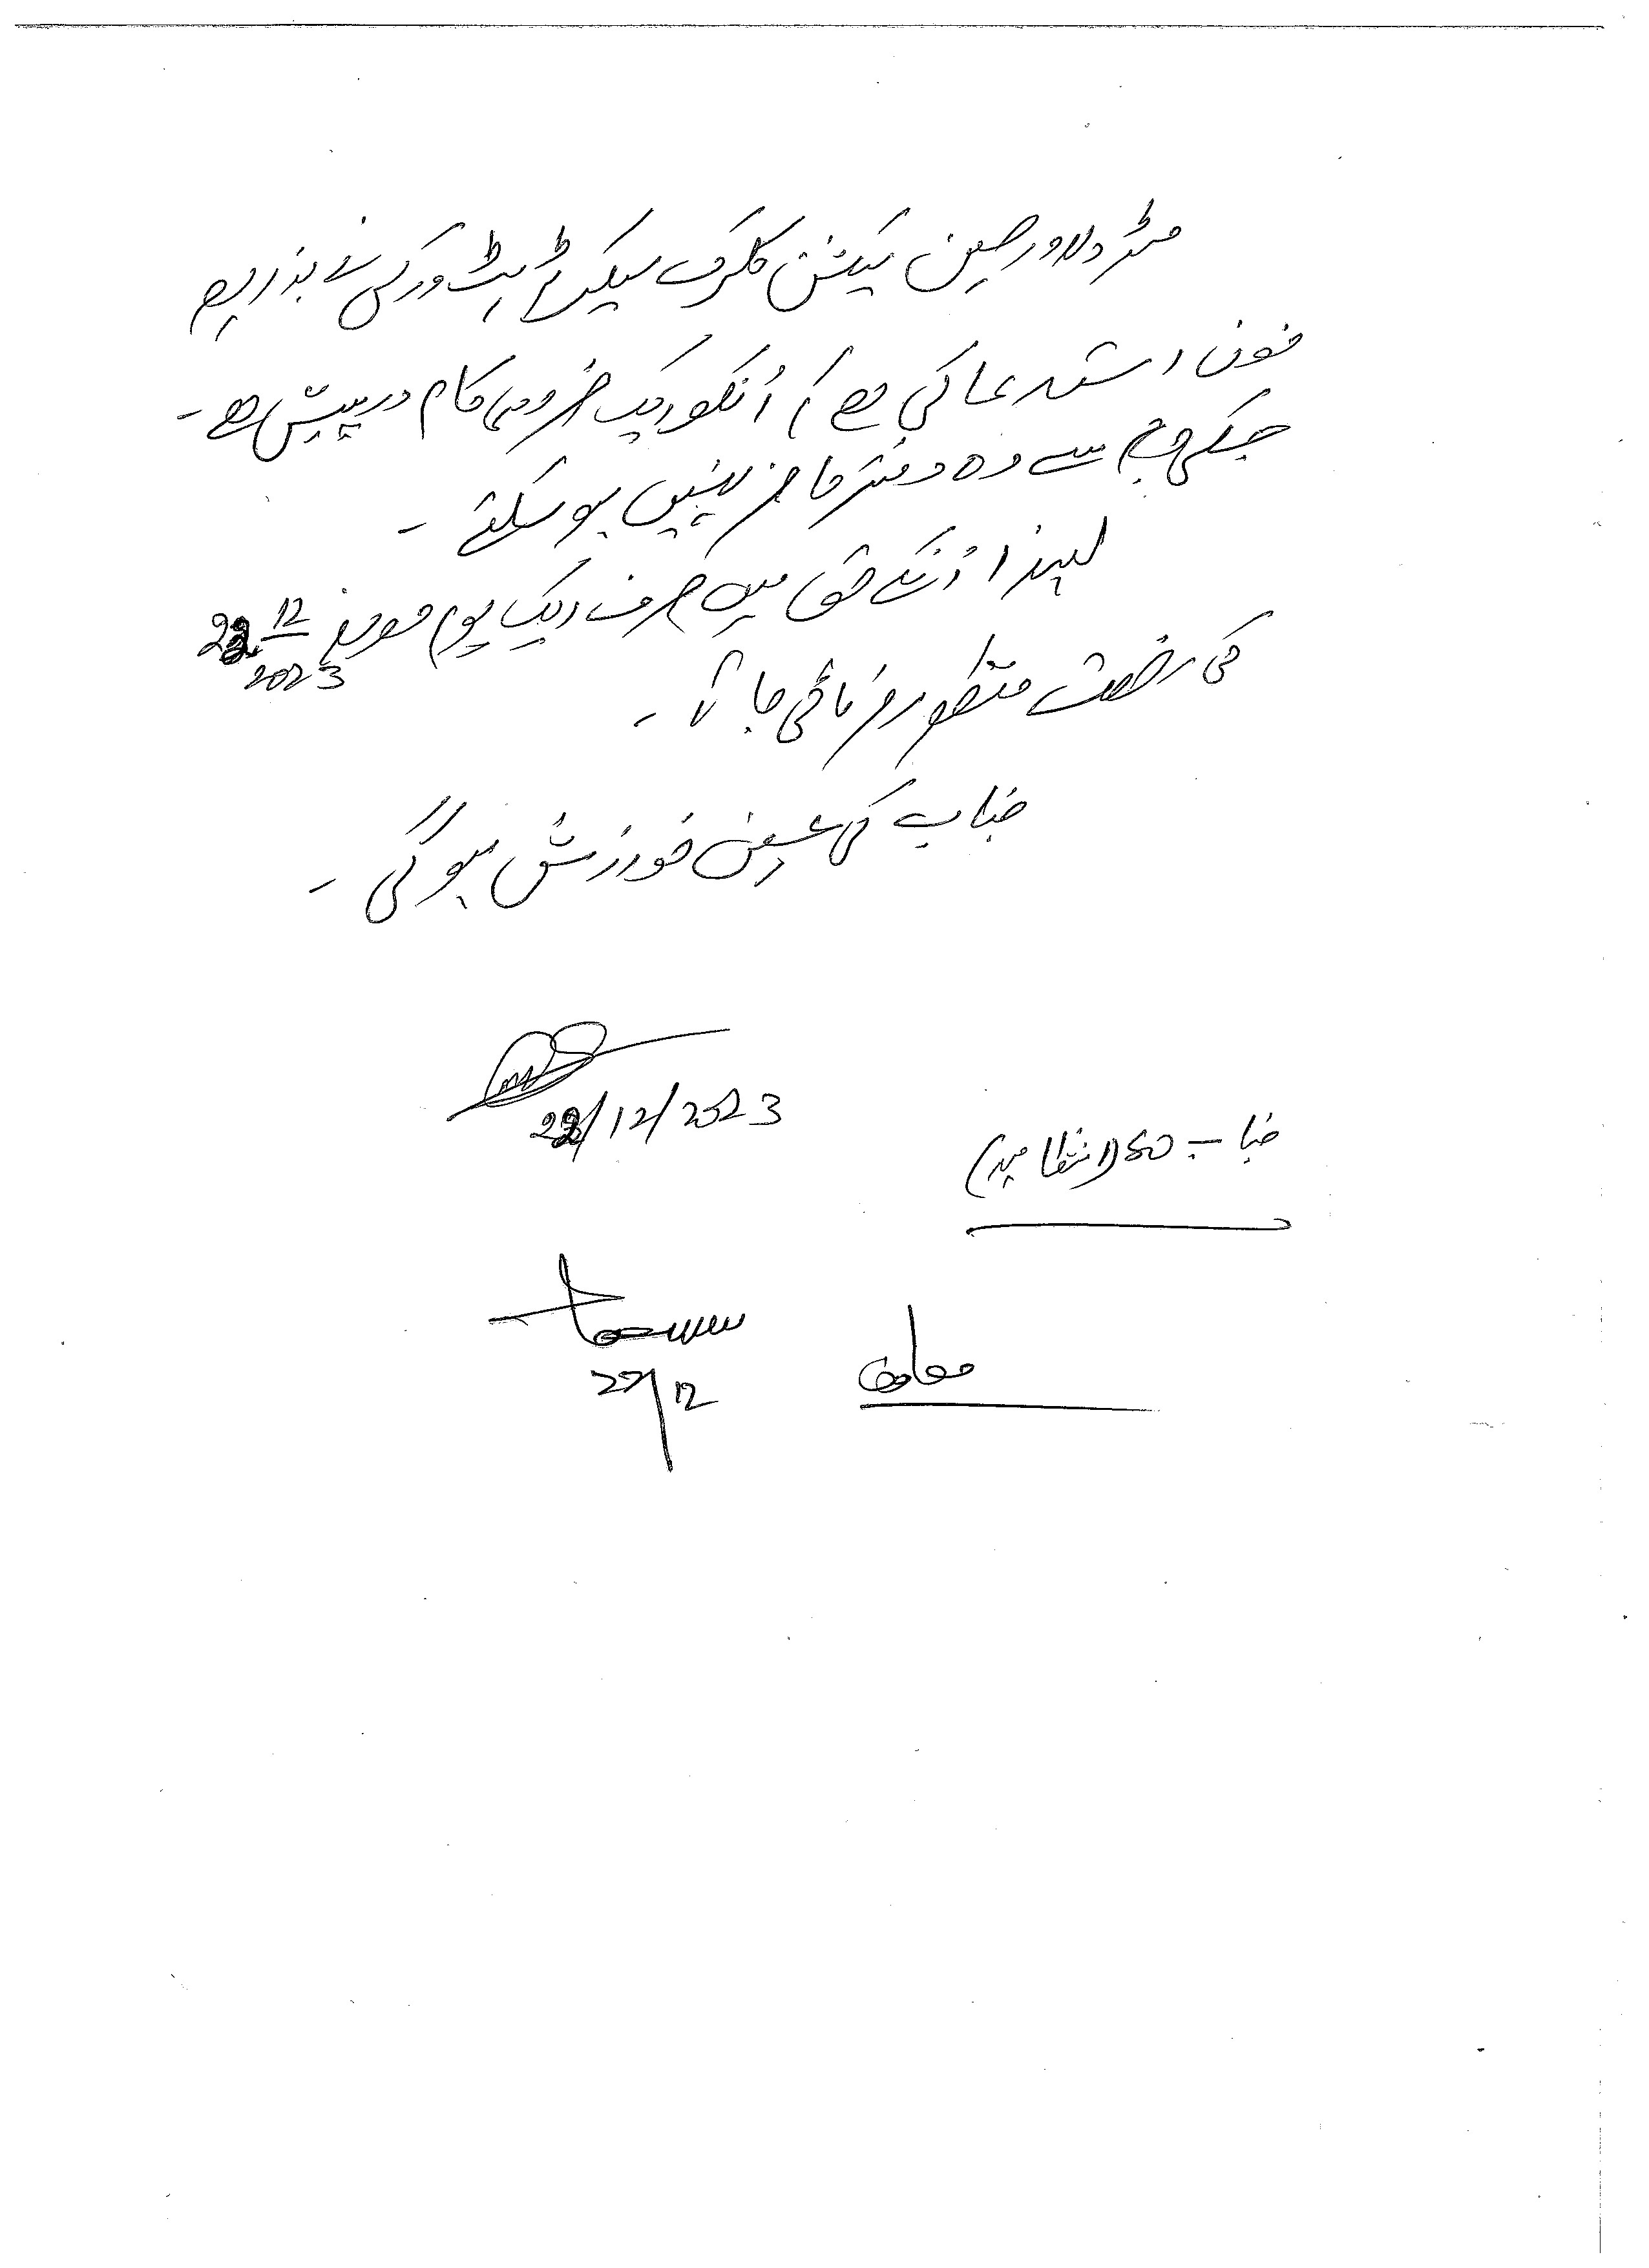 مسٹر دلاور حسین سیکشن کلرک سیکرٹریٹ ورکس نے بذریعہ
فون استدعا کی ہے کہ انکو ایک ضروری کام درپیش ہے۔
جسکی وجہ سے وہ دفتر حاضر نہیں ہو سکتے ۔
لہذا انکے حق میں صرف ایک یوم مورخہ 22-12-2023
کی رخصت منظور فرمائی جائے ۔
جناب کی عین نوازش ہوگی ۔
22/12/2023
جناب SO (انتظامیہ)
22/12